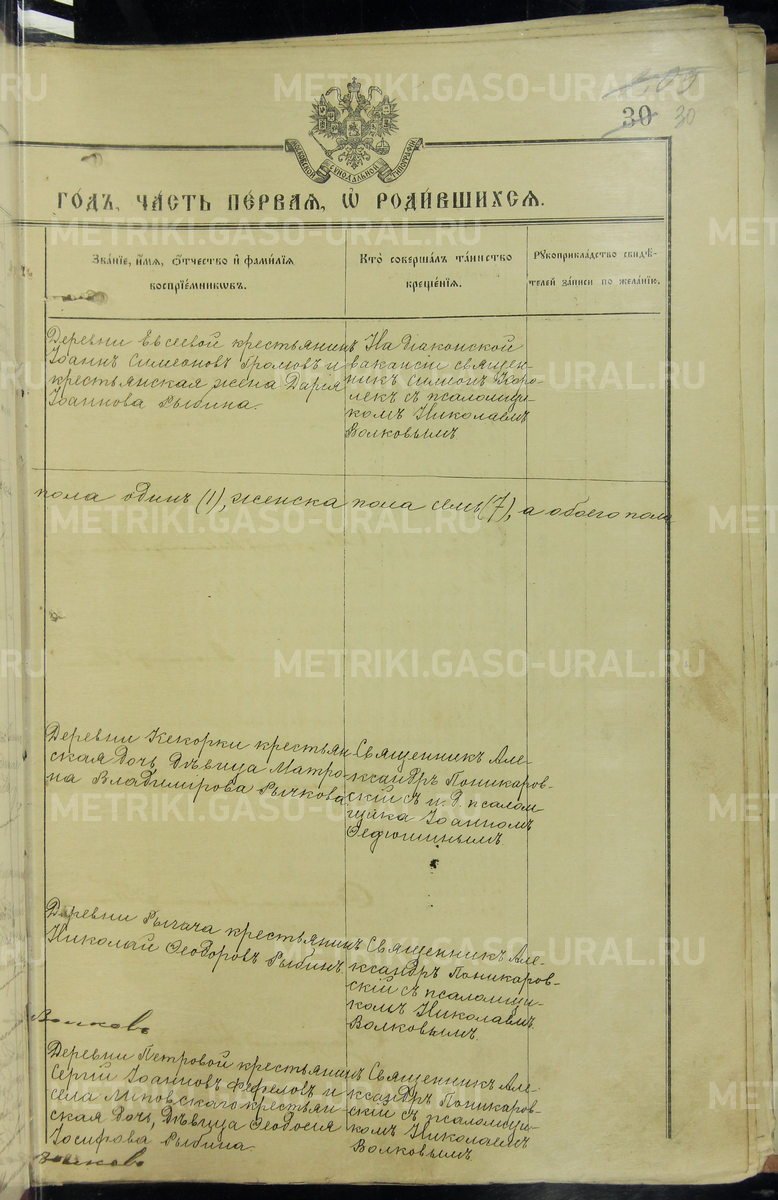 209
30 30
МОСКОВСКОЙ СѴНОДАЛЬНОЙ ТИПОГРАФІИ
ГО́ДЪ, ЧА́СТЬ ПЕ́РВАЯ, Ѽ РОДИ́ВШИХСЯ.
Зва́нїе, и҆́мѧ, ѻ҆́тчество и҆ фамилїѧ
воспрїе́мниковъ.
Кто̀ соверша́лъ та́инство
креще́нїѧ.
Рꙋкоприкла́дство свидѣ́-
телей за́писи по жела́нїю.
Деревни Евсеевой крестьянинъ
Іоаннъ Симеоновъ Громовъ и
крестьянская жена Дарія
Іоаннова Рыбина.
На діаконской
вакансіи священ-
никъ Симеон Коро-
лекъ с псаломщи-
комъ Николаемъ
Волковымъ
пола одинъ (1), женска пола семь (7), а обоего пола
Деревни Кекорки крестьян-
ская дочь, дѣвица Матро-
на Владимірова Рычкова.
Священникъ Але-
ксандръ Поникаров-
скій съ и.д. псалом-
щика Іоанномъ
Ѳедюшинымъ
Деревни Рычача крестьянинъ
Николай Ѳеодоровъ Рыбинъ
Священникъ Але-
ксандръ Поникаров-
скій съ псаломщи-
комъ Николаемъ
Волковымъ.
Волковъ
Деревни Петровой крестьянинъ
Сергій Іоанновъ Фефеловъ и
села Липовскаго крестьян-
ская дочь, дѣвица Ѳеодосія
Іосифова Рыбина.
Священникъ Але-
ксандръ Поникаров-
скій съ псаломщи-
комъ Николаемъ
Волковымъ.
Волковъ
METRIKI.GASO-URAL.RU